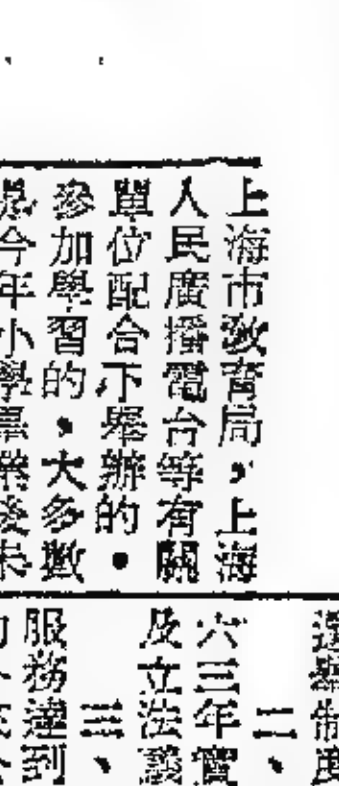 上海市教育局，上海
人民廣播電台等有關
單位配合下舉辦的。
參加學習的，大多數
是今年小學畢業後未
選舉制度
二、
六三年實
及立法議
三、
服務達到